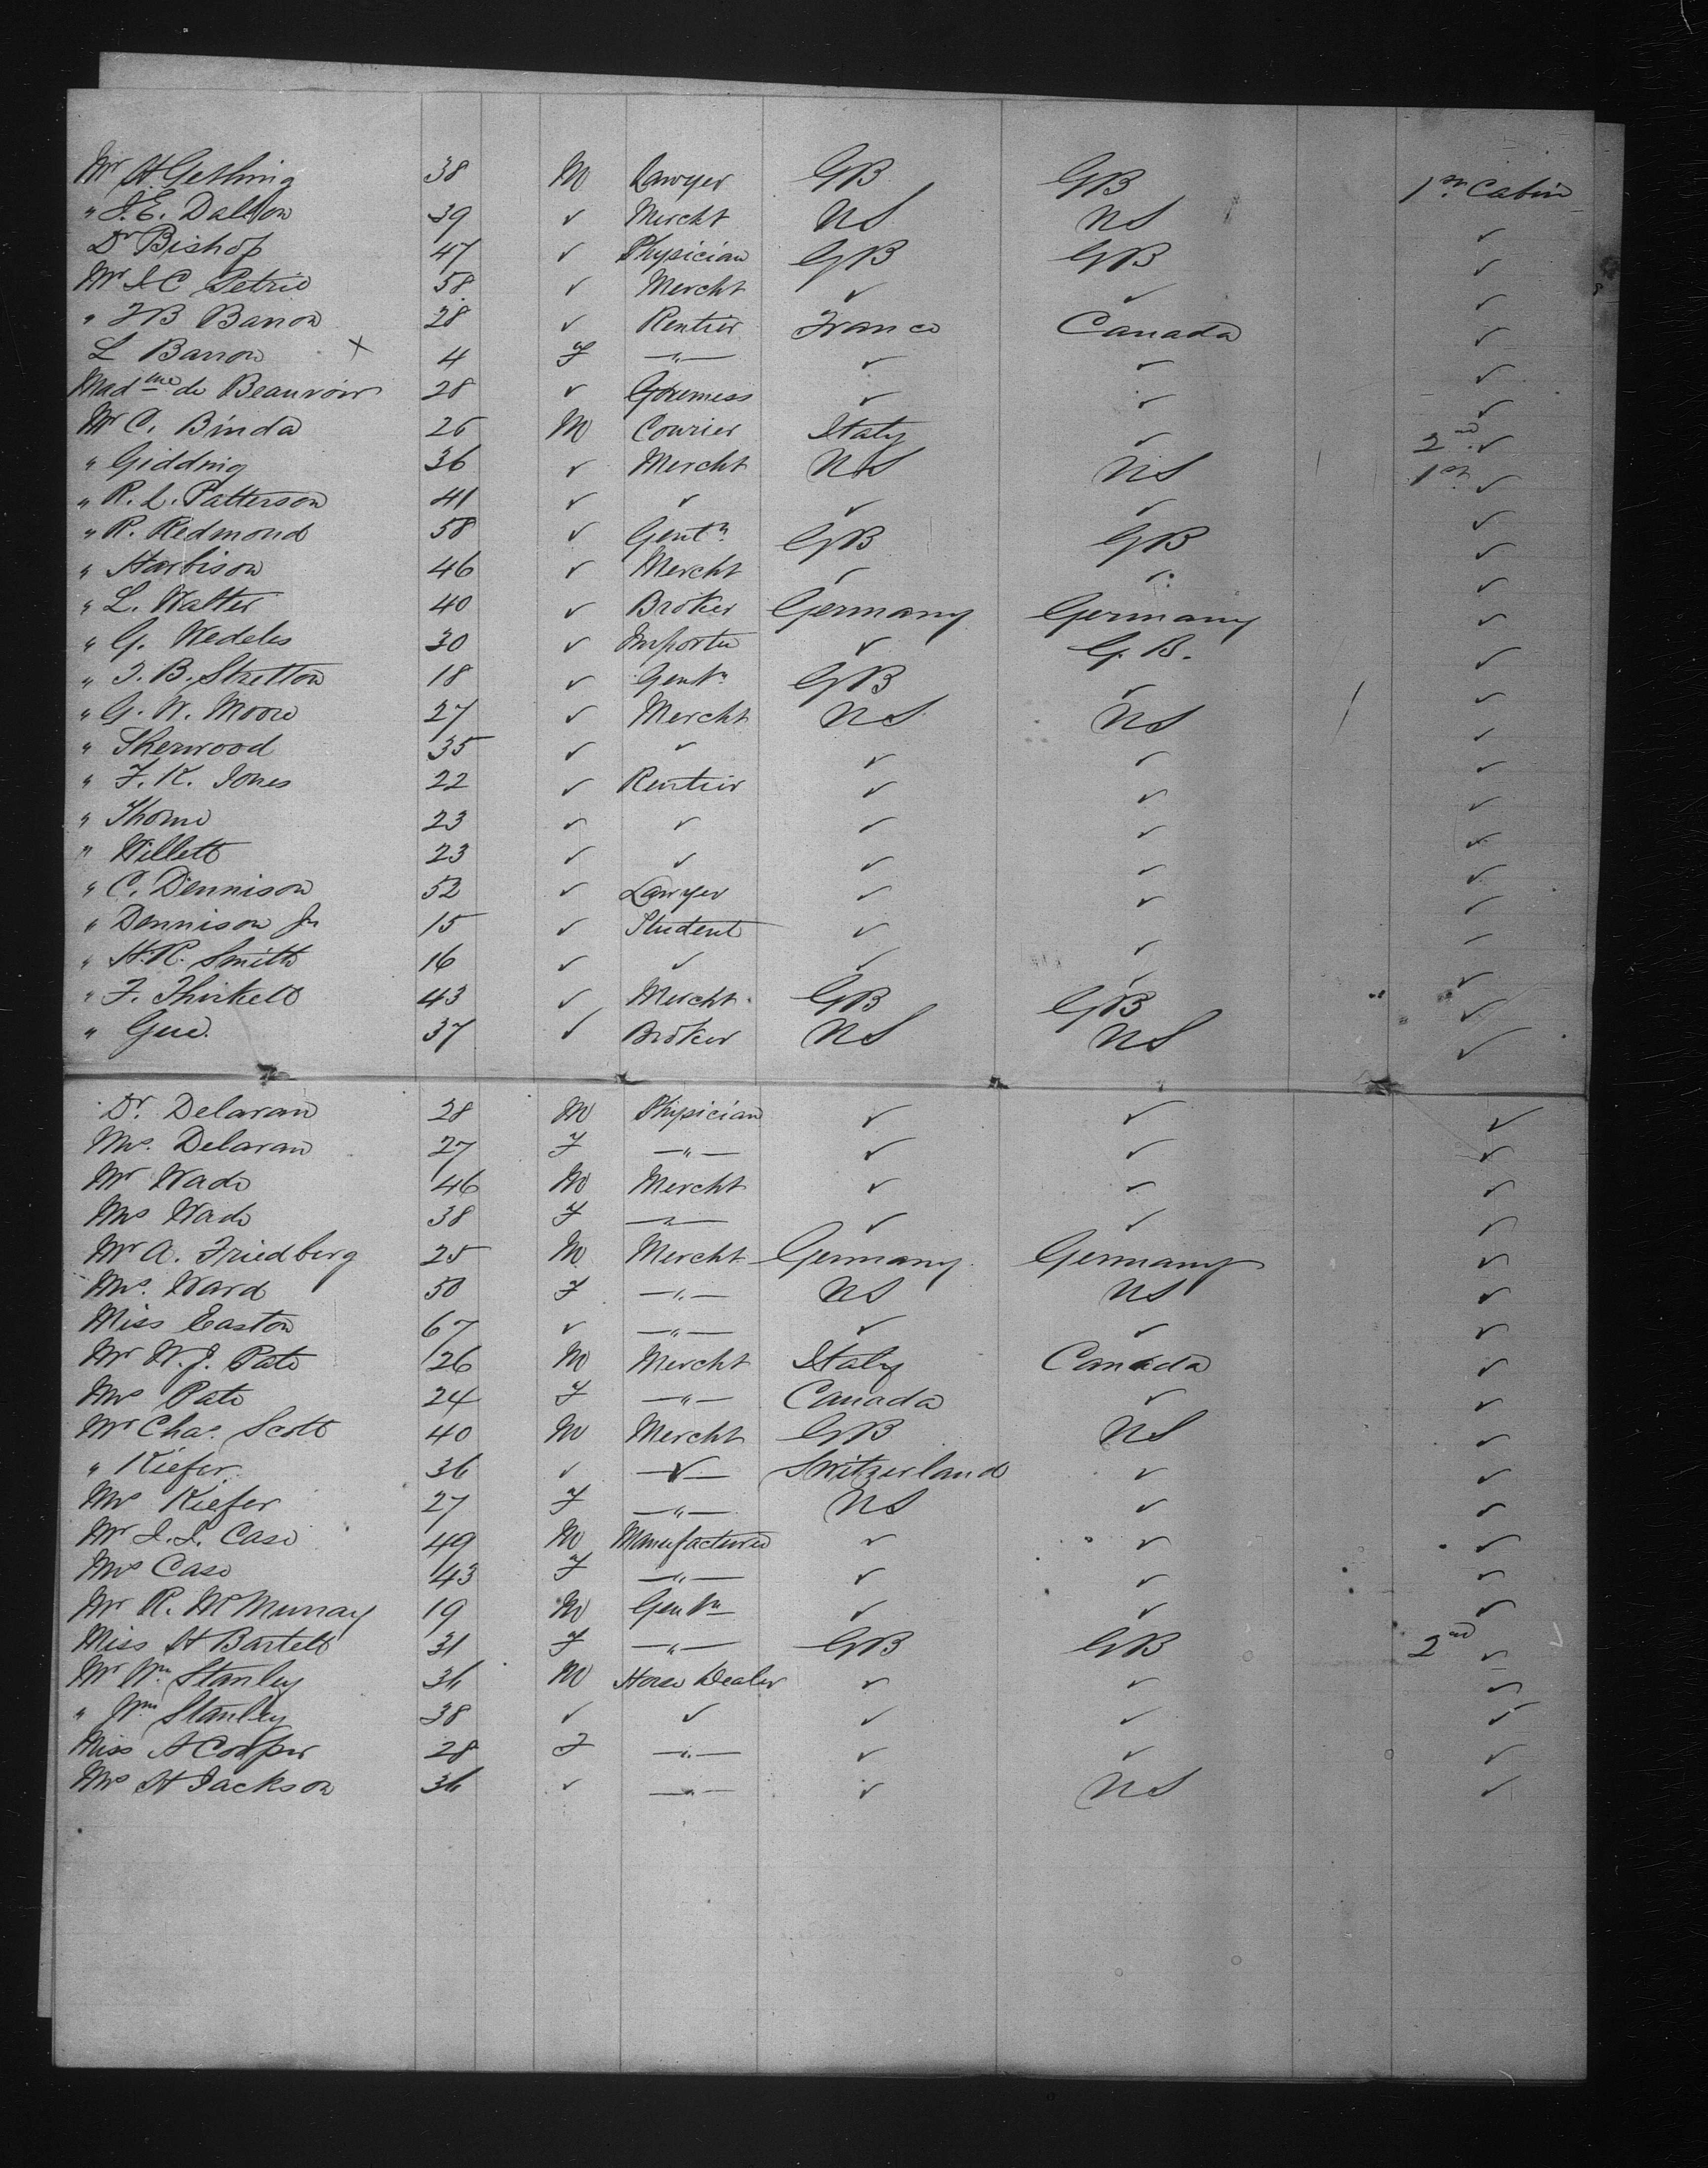 Mr H Gething 38 M Lawyer GB GB 1st Cabin
" J. E. Dalton 39 ✓ Mercht US US ✓
Dr Bishop 47 ✓ Physician GB GB ✓
Mr & C Petrie 58 ✓ Mercht ✓ ✓ ✓
" J B Barron 28 ✓ Rentier France Canada ✓
L Barron × 4 F —"— ✓ ✓ ✓
Madme de Beauvoir 28 ✓ Governess ✓ ✓ ✓
Mr C. Binda 26 M Courier Italy ✓ 2nd ✓
" Gidding 36 ✓ Mercht US US 1st ✓
" R. L. Patterson 41 ✓ ✓ ✓ ✓ ✓
" R. Redmond 58 ✓ Gentn GB GB ✓
" Harbison 46 ✓ Mercht ✓ ✓ ✓
" L. Walter 40 ✓ Broker Germany Germany ✓
" G. Wedeles 30 ✓ Importer ✓ G. B. ✓
" J. B. Stretton 18 ✓ Gentn GB ✓ ✓
" G. W. Moore 27 ✓ Mercht US US ✓
" Sherwood 35 ✓ ✓ ✓ ✓ ✓
" F. K. Jones 22 ✓ Rentier ✓ ✓ ✓
" Thorne 23 ✓ ✓ ✓ ✓ ✓
" Willett 23 ✓ ✓ ✓ ✓ ✓
" C. Dennison 52 ✓ Lawyer ✓ ✓ ✓
" Dennison Jr 15 ✓ Student ✓ ✓ ✓
" H. R. Smith 16 ✓ ✓ ✓ ✓ ✓
" F. Thirkell 43 ✓ Mercht GB GB ✓
" Gue. 37 ✓ Broker US US ✓
Dr. Delavan 28 M Physician ✓ ✓ ✓
Mrs. Delavan 27 F —"— ✓ ✓ ✓
Mr Wade 46 M Mercht ✓ ✓ ✓
Mrs Wade 38 F —"— ✓ ✓ ✓
Mr A. Friedberg 25 M Mercht Germany Germany ✓
Mrs. Ward 50 F —"— US US ✓
Miss Easton 67 ✓ —"— ✓ ✓ ✓
Mr W. J. Pate 26 M Mercht Italy Canada ✓
Mrs Pate 24 F —"— Canada ✓ ✓
Mr Chas. Scott 40 M Mercht GB US ✓
" Kiefer 36 ✓ —✓— Switzerland ✓ ✓
Mrs Kiefer 27 F —"— US ✓ ✓
Mr J. I. Case 49 M Manufacturer ✓ ✓ ✓
Mrs Case 43 F —"— ✓ ✓ ✓
Mr R. McMurray 19 M Gentn ✓ ✓ ✓
Miss H Bartelt 31 F —"— GB GB 2nd ✓
Mr Wm Stanley 36 M Horse Dealer ✓ ✓ ✓
" Wm Stanley 38 ✓ ✓ ✓ ✓ ✓
Miss A Cooper 28 F —"— ✓ ✓ ✓
Mrs H Jackson 36 ✓ —"— ✓ US ✓